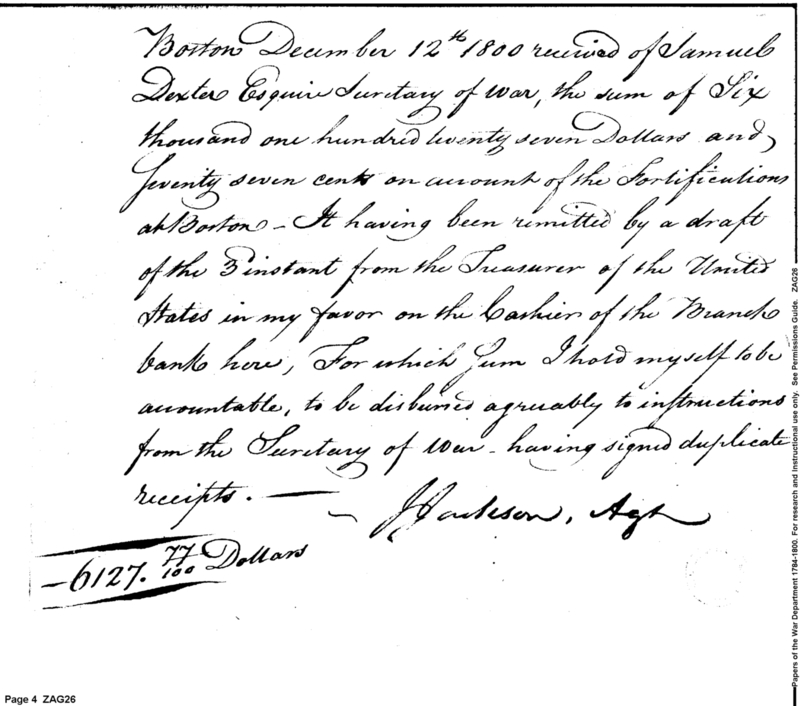 Boston December 12th 1800 received of Samuel
Dexter Esquire Secretary of War, the sum of Six
thousand one hundred twenty seven Dollars and
Seventy seven cents on account of the Fortifications
at Boston - It having been remitted by a draft
of the 3d instant from the Treasurer of the United
States in my favor on the Cashier of the Branch
bank here, For which Sum I hold myself to be
accountable, to be disbursed agreeably to instructions
from the Secretary of War - having signed duplicate
receipts. —
~ J Jackson, Agt
- 6127. 77/100 Dollars
Page 4 ZAG26
Papers of the War Department 1784-1800. For research and instructional use only. See Permissions Guide. ZAG26